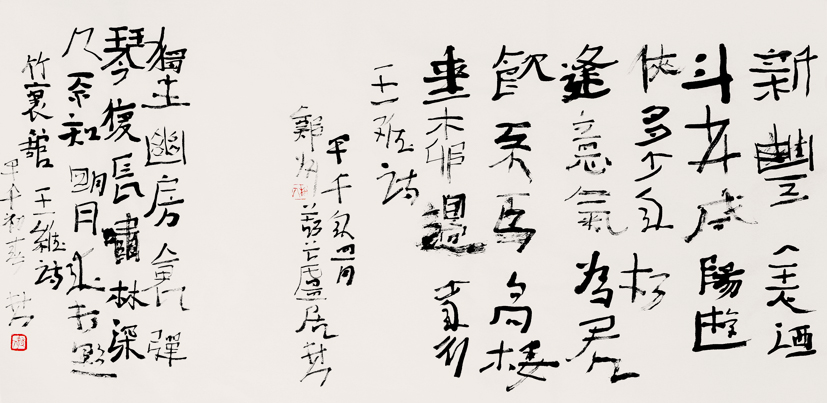 新豐美酒
斗十千咸陽遊
俠多少年相
逢意氣為君
飲系馬高樓
垂柳邊 少年行
王維詩
甲午年四月
鄭州 廬居
獨坐幽房裏彈
琴復長嘯林深
人不知明月來相照
竹裏館 王維詩
甲午初春